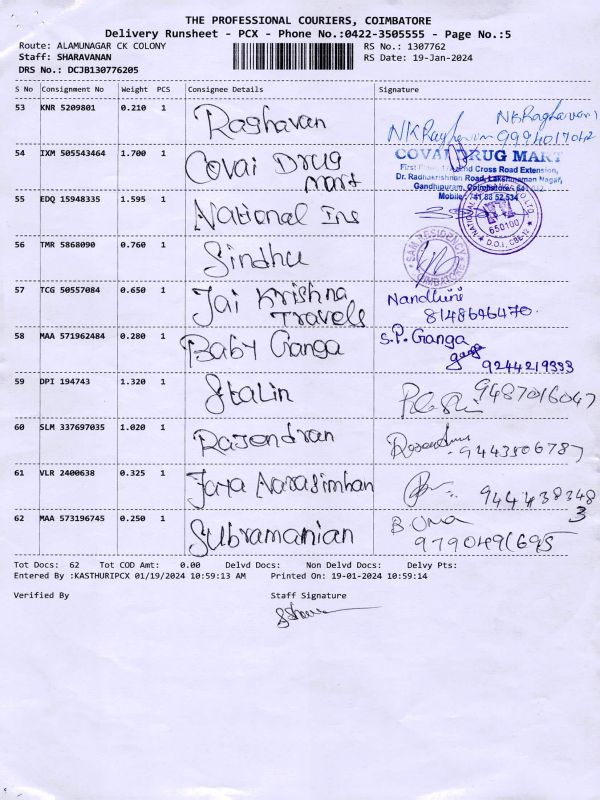 THE PROFESSIONAL COURIERS, COIMBATORE
Delivery Runsheet - PCX - Phone No.:0422-3505555 - Page No.:5
Route: ALAMUNAGAR CK COLONY RS No.: 1307762
Staff: SHARAVANAN RS Date: 19-Jan-2024
DRS No.: DCJB130776205
S No Consignment No Weight PCS Consignee Details Signature
53 KNR 5209801 0.210 1 Raghavan
NKRaghavan 9994017042
54 IXM 505543464 1.700 1 Covai Drug
mart
COVAI DRUG MART
Cross Road Extension,
Dr. Radhakrishnan Road, Lakshmanan Nagar,
Gandhipuram, Coimbatore
Mobile
55 EDQ 15948335 1.595 1 National Ins
650100
D.O.I, CBE-12
56 TMR 5868090 0.760 1 Sindhu
SAM RESIDENCY
COIMBATORE
57 TCG 50557084 0.650 1 Jai Krishna
Travels
Nandhini
8148646470
58 MAA 571962484 0.280 1 Baby Ganga
S.P. Ganga
9244219333
59 DPI 194743 1.320 1 Stalin
9487016047
60 SLM 337697035 1.020 1 Rajendran
9443506787
61 VLR 2400638 0.325 1 Jaya Narasimhan
944438348
3
62 MAA 573196745 0.250 1 Subramanian
B. Uma
9790491695
Tot Docs: 62 Tot COD Amt: 0.00 Delvd Docs: Non Delvd Docs: Delvy Pts:
Entered By :KASTHURIPCX 01/19/2024 10:59:13 AM Printed On: 19-01-2024 10:59:14
Verified By Staff Signature